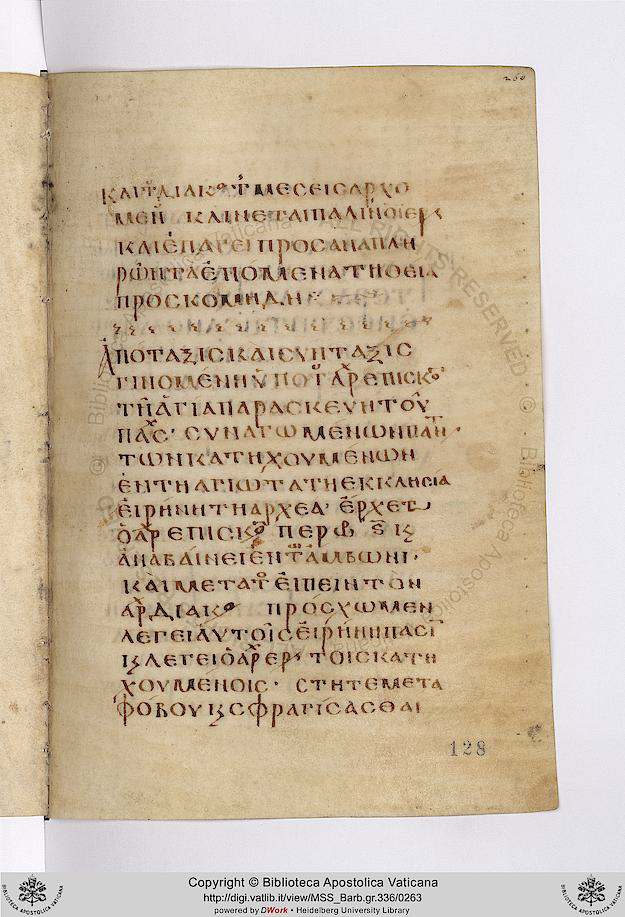 260
ΜΕΝ ΚΑΙ ΜΕΤΑ ΠΑΛΙΝ Ο ΙΕΡ
ΚΑΙ ΕΠΑΓΕΙ ΠΡΟΣ ΑΝΑΠΛΗ
ΡΩΝΤΑ ΕΠΟΜΕΝΑ ΤΗ ΘΕΙΑ
ΠΡΟΣΚΟΜΙΔΗ
ΑΠΟΤΑΞΙΣ ΚΑΙ ΣΥΝΤΑΞΙΣ
ΓΙΝΟΜΕΝΗ ΥΠΟ ΤΟΥ ΑΡΧΕΠΙΣΚΟ
ΤΗ ΑΓΙΑ ΠΑΡΑΣΚΕΥΗ ΤΟΥ
ΠΑΣΧ· ΣΥΝΑΓΩΜΕΝΩΝ ΠΑΝ
ΤΩΝ ΚΑΤΗΧΟΥΜΕΝΩΝ
ΕΝ ΤΗ ΑΓΙΩΤΑΤΗ ΕΚΚΛΗΣΙΑ
ΕΙΡΗΝΗ ΤΗ ΑΡΧΕΑ· ΕΡΧΕΤ
Ο ΑΡΧΕΠΙΣΚΟ ΠΕΡ
ΑΝΑΒΑΙΝΕΙ ΕΝ Τ ΑΜΒΩΝΙ·
ΚΑΙ ΜΕΤΑ Τ ΕΙΠΕΙΝ ΤΟΝ
ΑΡΧΔΙΑΚΟ ΠΡΟΣΧΩΜΕΝ
ΛΕΓΕΙ ΑΥΤΟΙΣ ΕΙΡΗΝΗ ΠΑΣΙ
Ϗ ΛΕΓΕΙ Ο ΑΡΧΕΡ· ΤΟΙΣ ΚΑΤΗ
ΧΟΥΜΕΝΟΙΣ· ΣΤΗΤΕ ΜΕΤΑ
ΦΟΒΟΥ Ϗ ΣΦΡΑΓΙΣΑΣΘΑΙ
128
Copyright © Biblioteca Apostolica Vaticana
http://digi.vatlib.it/view/MSS_Barb.gr.336/0263
powered by DWork • Heidelberg University Library